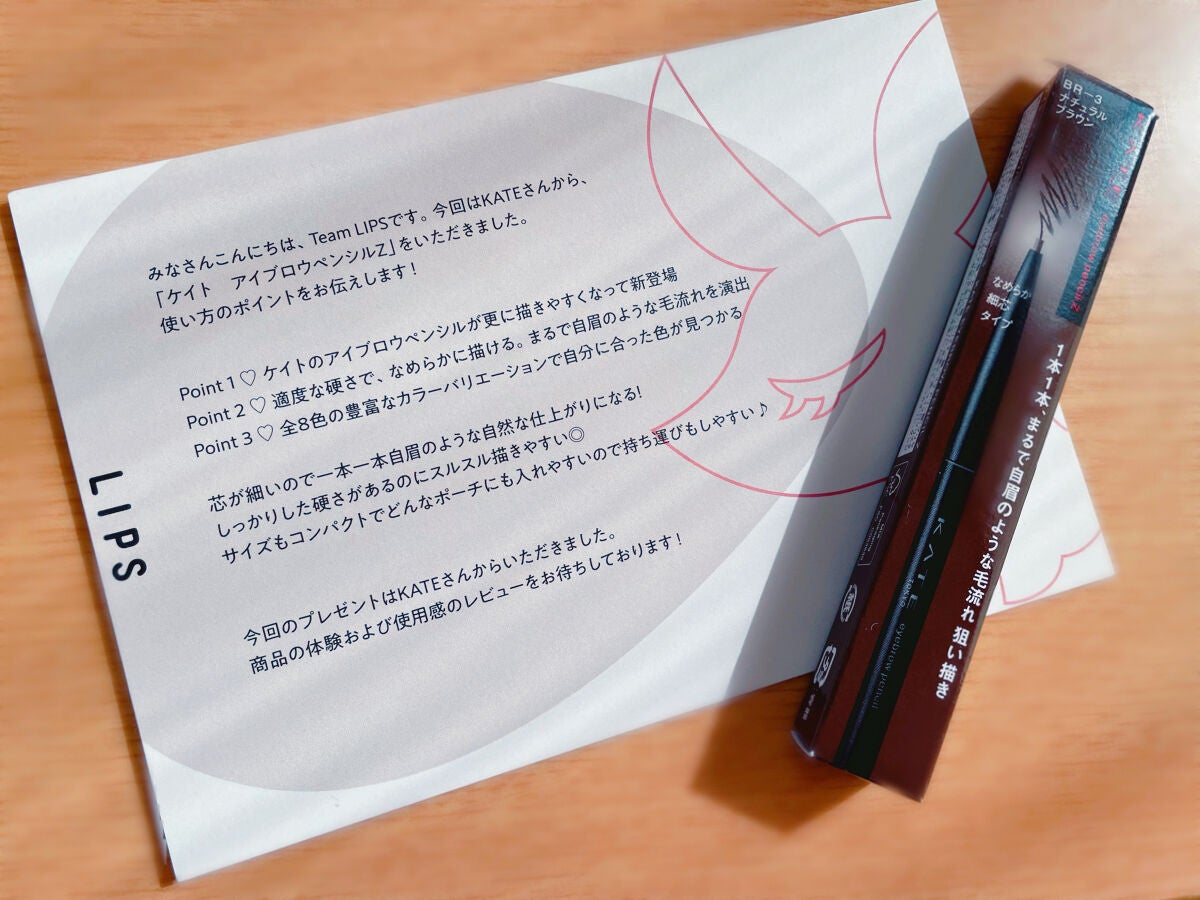 みなさんこんにちは、Team LIPSです。今回はKATEさんから、
「ケイト　アイブロウペンシルZ」をいただきました。
使い方のポイントをお伝えします!
Point 1♡ ケイトのアイブロウペンシルが更に描きやすくなって新登場
Point 2♡ 適度な硬さで、なめらかに描ける。まるで自眉のような毛流れを演出
Point 3♡ 全8色の豊富なカラーバリエーションで自分に合った色が見つかる
芯が細いので一本一本自眉のような自然な仕上がりになる!
しっかりした硬さがあるのにスルスル描きやすい◎
サイズもコンパクトでどんなポーチにも入れやすいので持ち運びもしやすい♪
今回のプレゼントはKATEさんからいただきました。
商品の体験および使用感のレビューをお待ちしております!
LIPS
BR-3
ナチュラル
ブラウン
eyebrow pencil Z
なめらか
細芯
タイプ
1本1本、まるで自眉のような毛流れ 狙い描き
KATE
TOKYO
eyebrow pencil